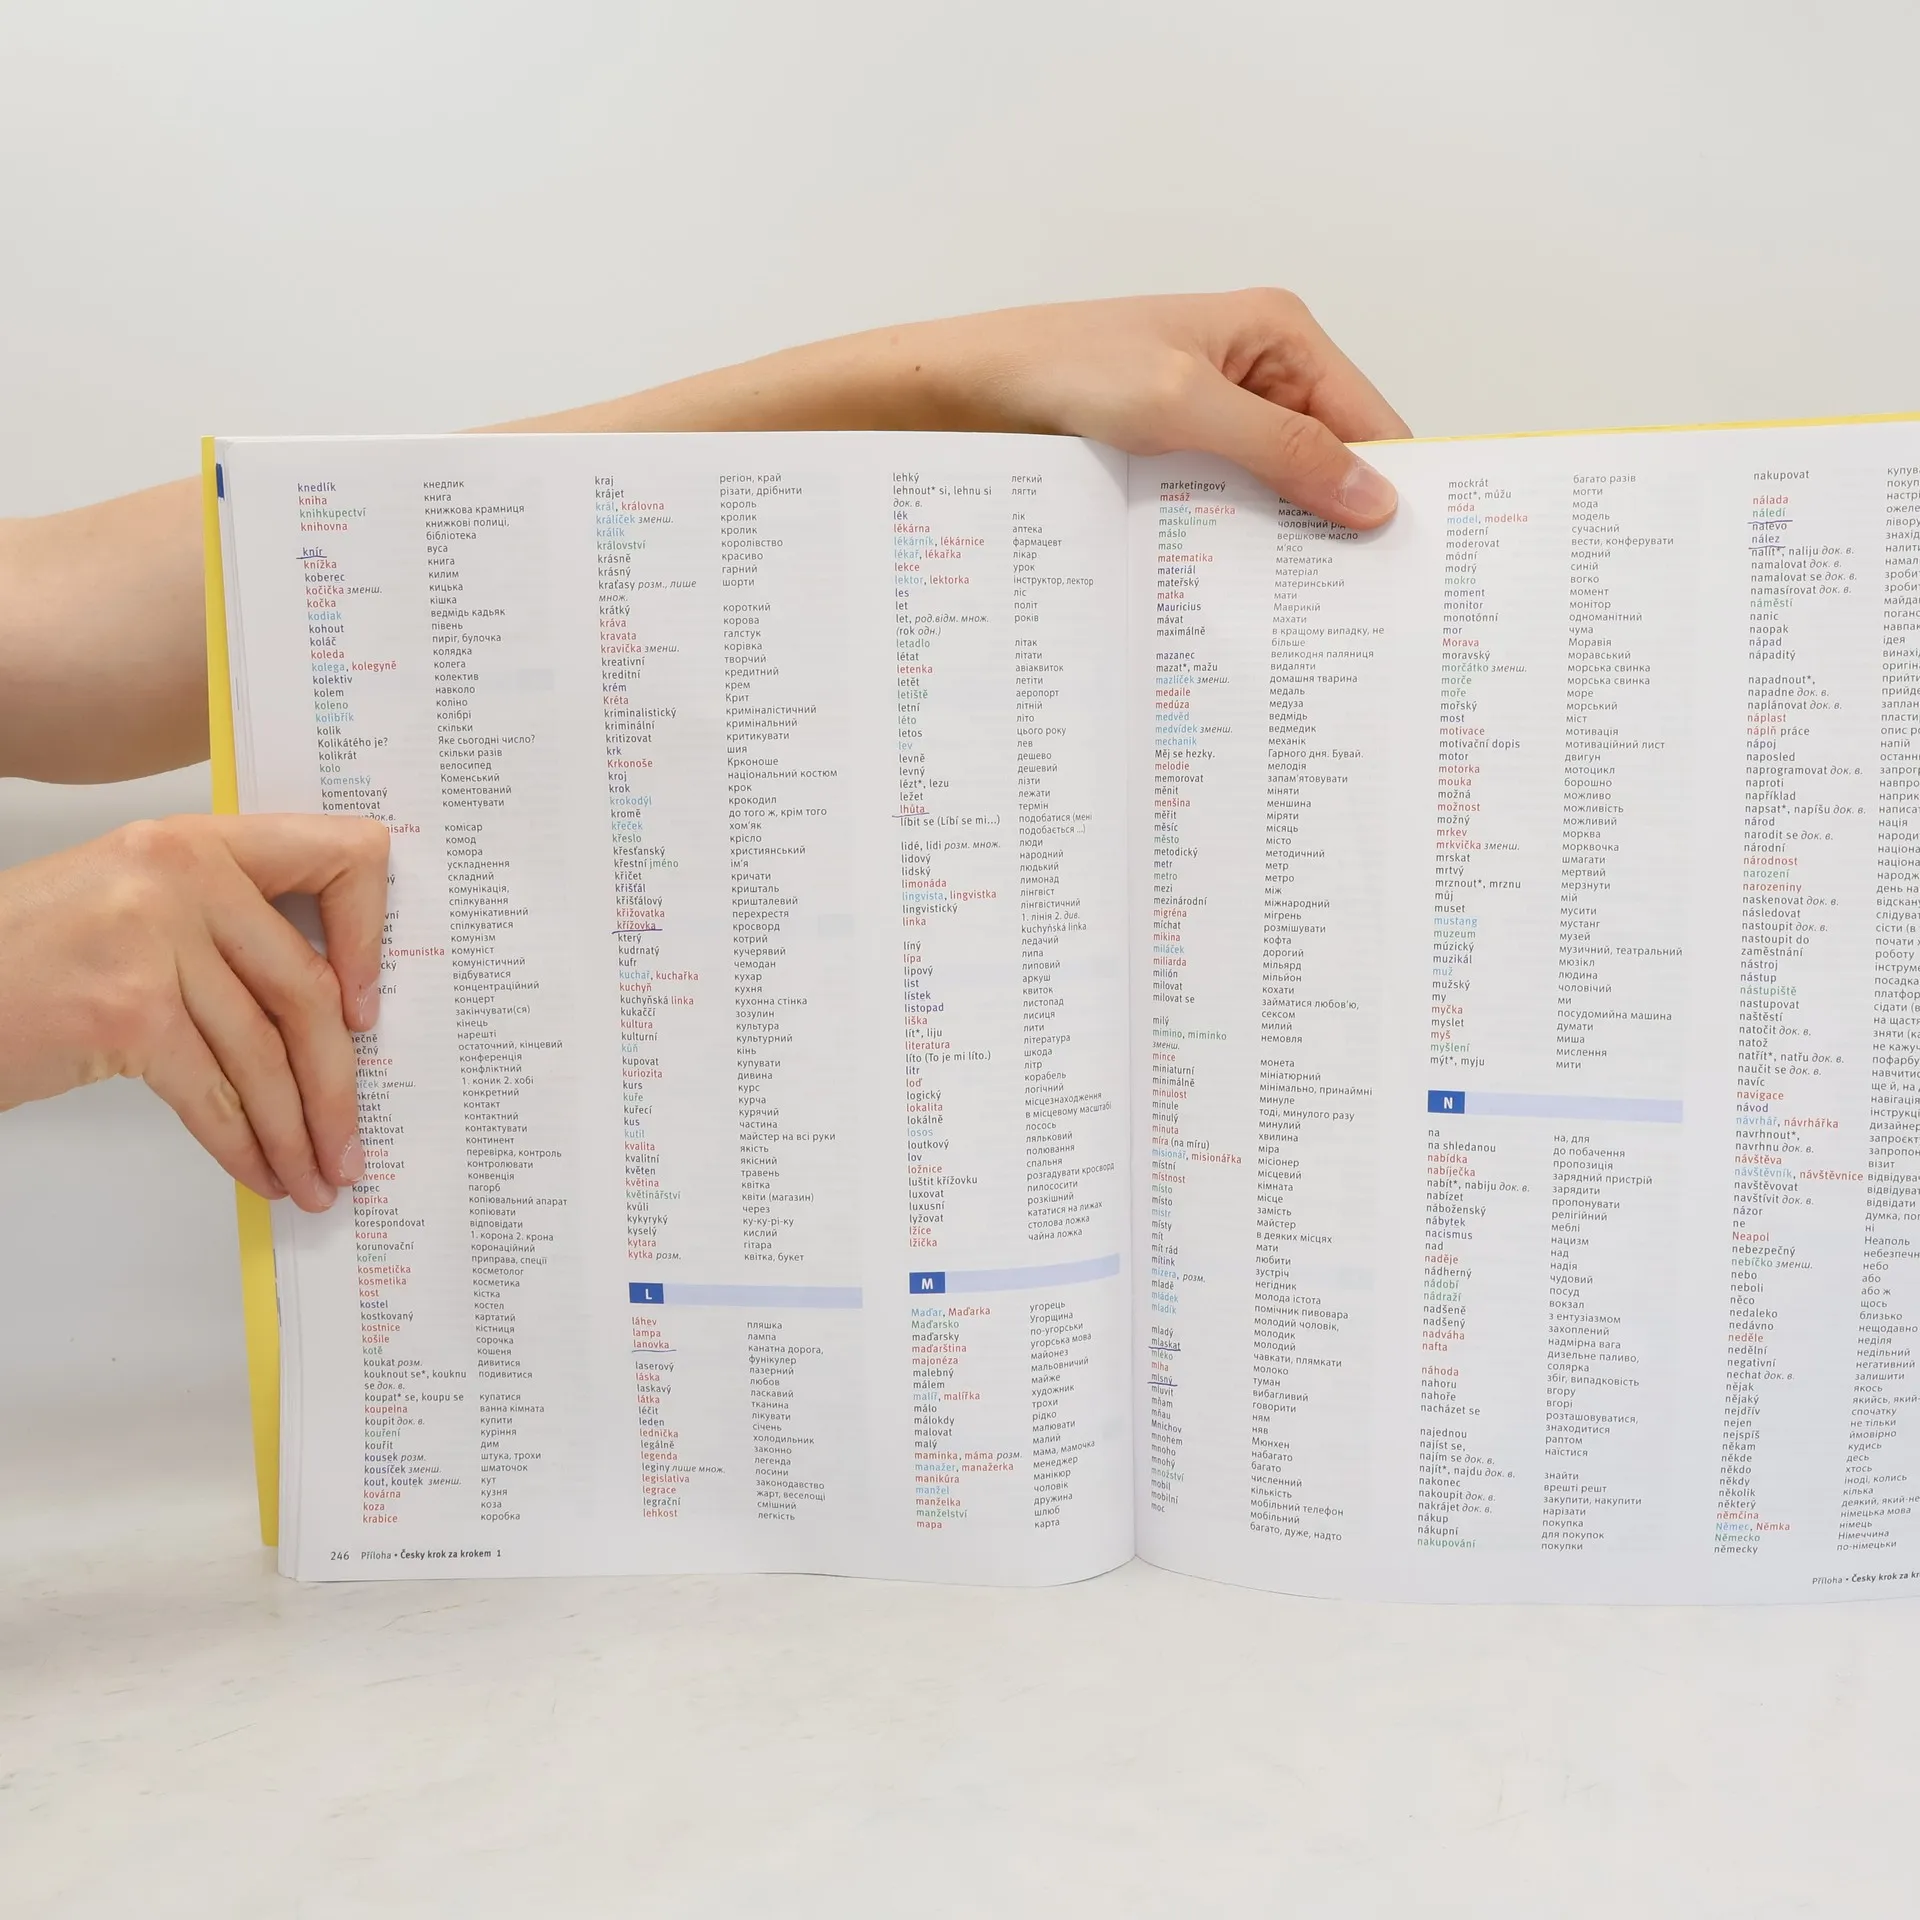 knedlík кнедлик
kniha книга
knihkupectví книжкова крамниця
knihovna книжкові полиці,
бібліотека
knír вуса
knížka книга
koberec килим
kočička зменш. кицька
kočka кішка
kodiak ведмідь кадьяк
kohout півень
koláč пиріг, булочка
koleda колядка
kolega, kolegyně колега
kolektiv колектив
kolem навколо
koleno коліно
kolibřík колібрі
kolik скільки
Kolikátého je? Яке сьогодні число?
kolikrát скільки разів
kolo велосипед
Komenský Коменський
komentovaný коментований
komentovat коментувати
комісар
комод
комора
ускладнення
складний
комунікація,
спілкування
комунікативний
спілкуватися
комунізм
, komunistka комуніст
комуністичний
відбуватися
концентраційний
концерт
закінчувати(ся)
кінець
нарешті
остаточний, кінцевий
конференція
конфліктний
1. коник 2. хобі
конкретний
контакт
контактний
контактувати
континент
перевірка, контроль
контролювати
конвенція
kopec пагорб
kopírka копіювальний апарат
kopírovat копіювати
korespondovat відповідати
koruna 1. корона 2. крона
korunovační коронаційний
koření приправа, спеції
kosmetička косметолог
kosmetika косметика
kost кістка
kostel костел
kostkovaný картатий
kostnice кістниця
košile сорочка
kotě кошеня
koukat розм. дивитися
kouknout se*, kouknu подивитися
se док. в.
koupat* se, koupu se купатися
koupelna ванна кімната
koupit док. в. купити
kouření куріння
kouřit дим
kousek розм. штука, трохи
kousíček зменш. шматочок
kout, koutek зменш. кут
kovárna кузня
koza коза
krabice коробка
246 Příloha • Česky krok za krokem 1
kraj регіон, край
krájet різати, дрібнити
král, královna король
králíček зменш. кролик
králík кролик
království королівство
krásně красиво
krásný гарний
kraťasy розм., лише шорти
множ.
krátký короткий
kráva корова
kravata галстук
kravička зменш. корівка
kreativní творчий
kreditní кредитний
krém крем
Kréta Крит
kriminalistický криміналістичний
kriminální кримінальний
kritizovat критикувати
krk шия
Krkonoše Крконоше
kroj національний костюм
krok крок
krokodýl крокодил
kromě до того ж, крім того
křeček хом'як
křeslo крісло
křesťanský християнський
křestní jméno ім'я
křičet кричати
křišťál кришталь
křišťálový кришталевий
křižovatka перехрестя
křížovka кросворд
který котрий
kudrnatý кучерявий
kufr чемодан
kuchař, kuchařka кухар
kuchyň кухня
kuchyňská linka кухонна стінка
kukaččí зозулин
kultura культура
kulturní культурний
kůň кінь
kupovat купувати
kuriozita дивина
kurs курс
kuře курча
kuřecí курячий
kus частина
kutil майстер на всі руки
kvalita якість
kvalitní якісний
květen травень
květina квітка
květinářství квіти (магазин)
kvůli через
kykyryký ку-ку-рі-ку
kyselý кислий
kytara гітара
kytka розм. квітка, букет
L
láhev пляшка
lampa лампа
lanovka канатна дорога,
фунікулер
laserový лазерний
láska любов
laskavý ласкавий
látka тканина
léčit лікувати
leden січень
lednička холодильник
legálně законно
legenda легенда
leginy лише множ. лосини
legislativa законодавство
legrace жарт, веселощі
legrační смішний
lehkost легкість
lehký легкий
lehnout* si, lehnu si лягти
док. в.
lék лік
lékárna аптека
lékárník, lékárnice фармацевт
lékař, lékařka лікар
lekce урок
lektor, lektorka інструктор, лектор
les ліс
let політ
let, род.відм. множ. років
(rok одн.)
letadlo літак
létat літати
letenka авіаквиток
letět летіти
letiště аеропорт
letní літній
léto літо
letos цього року
lev лев
levně дешево
levný дешевий
lézt*, lezu лізти
ležet лежати
lhůta термін
líbit se (Líbí se mi...) подобатися (мені
подобається ...)
lidé, lidi розм. множ. люди
lidový народний
lidský людький
limonáda лимонад
lingvista, lingvistka лінгвіст
lingvistický лінгвістичний
linka 1. лінія 2. див.
kuchyňská linka
líný ледачий
lípa липа
lipový липовий
list аркуш
lístek квиток
listopad листопад
liška лисиця
lít*, liju лити
literatura література
líto (To je mi líto.) шкода
litr літр
loď корабель
logický логічний
lokalita місцезнаходження
lokálně в місцевому масштабі
losos лосось
loutkový ляльковий
lov полювання
ložnice спальня
luštit křížovku розгадувати кросворд
luxovat пилососити
luxusní розкішний
lyžovat кататися на лижах
lžíce столова ложка
lžička чайна ложка
M
Maďar, Maďarka угорець
Maďarsko Угорщина
maďarsky по-угорськи
maďarština угорська мова
majonéza майонез
malebný мальовничий
málem майже
malíř, malířka художник
málo трохи
málokdy рідко
malovat малювати
malý малий
maminka, máma розм. мама, мамочка
manažer, manažerka менеджер
manikúra манікюр
manžel чоловік
manželka дружина
manželství шлюб
mapa карта
marketingový
masáž
masér, masérka
maskulinum чоловічий
máslo вершкове масло
maso м'ясо
matematika математика
materiál матеріал
mateřský материнський
matka мати
Mauricius Маврикій
mávat махати
maximálně в кращому випадку, не
більше
mazanec великодня паляниця
mazat*, mažu видаляти
mazlíček зменш. домашня тварина
medaile медаль
medúza медуза
medvěd ведмідь
medvídek зменш. ведмедик
mechanik механік
Měj se hezky. Гарного дня. Бувай.
melodie мелодія
memorovat запам'ятовувати
měnit міняти
menšina меншина
měřit міряти
měsíc місяць
město місто
metodický методичний
metr метр
metro метро
mezi між
mezinárodní міжнародний
migréna мігрень
míchat розмішувати
mikina кофта
miláček дорогий
miliarda мільярд
milión мільйон
milovat кохати
milovat se займатися любов'ю,
сексом
milý милий
mimino, miminko немовля
зменш.
mince монета
miniaturní мініатюрний
minimálně мінімально, принаймні
minulost минуле
minule тоді, минулого разу
minulý минулий
minuta хвилина
míra (na míru) міра
misionář, misionářka місіонер
místní місцевий
místnost кімната
místo місце
místo замість
mistr майстер
místy в деяких місцях
mít мати
mít rád любити
mítink зустріч
mizera, розм. негідник
mládě молода істота
mládek помічник пивовара
mladík молодий чоловік,
молодик
mladý молодий
mlaskat чавкати, плямкати
mléko молоко
mlha туман
mlsný вибагливий
mluvit говорити
mňam ням
mňau няв
Mnichov Мюнхен
mnohem набагато
mnoho багато
mnohý численний
množství кількість
mobil мобільний телефон
mobilní мобільний
moc багато, дуже, надто
mockrát багато разів
moct*, můžu могти
móda мода
model, modelka модель
moderní сучасний
moderovat вести, конферувати
módní модний
modrý синій
mokro вогко
moment момент
monitor монітор
monotónní одноманітний
mor чума
Morava Моравія
moravský моравський
morčátko зменш. морська свинка
morče морська свинка
moře море
mořský морський
most міст
motivace мотивація
motivační dopis мотиваційний лист
motor двигун
motorka мотоцикл
mouka борошно
možná можливо
možnost можливість
možný можливий
mrkev морква
mrkvička зменш. морквочка
mrskat шмагати
mrtvý мертвий
mrznout*, mrznu мерзнути
můj мій
muset мусити
mustang мустанг
muzeum музей
múzický музичний, театральний
muzikál мюзікл
muž людина
mužský чоловічий
my ми
myčka посудомийна машина
myslet думати
myš миша
myšlení мислення
mýt*, myju мити
N
na на, для
na shledanou до побачення
nabídka пропозиція
nabíječka зарядний пристрій
nabít*, nabiju док. в. зарядити
nabízet пропонувати
náboženský релігійний
nábytek меблі
nacismus нацизм
nad над
naděje надія
nádherný чудовий
nádobí посуд
nádraží вокзал
nadšeně з ентузіазмом
nadšený захоплений
nadváha надмірна вага
nafta дизельне паливо,
солярка
náhoda збіг, випадковість
nahoru вгору
nahoře вгорі
nacházet se розташовуватися,
знаходитися
najednou раптом
najíst se, наїстися
najím se док. в.
najít*, najdu док. в. знайти
nakonec врешті решт
nakoupit док. в. закупити, накупити
nakrájet док. в. нарізати
nákup покупка
nákupní для покупок
nakupování покупки
nakupovat
nálada
náledí
nalevo
nález
nalít*, naliju док. в.
namalovat док. в.
namalovat se док. в.
namasírovat док. в.
náměstí
nanic
naopak
nápad ідея
nápaditý
napadnout*,
napadne док. в.
naplánovat док. в.
náplast
náplň práce
nápoj напій
naposled
naprogramovat док. в.
naproti
například
napsat*, napíšu док. в.
národ нація
narodit se док. в.
národní
národnost
narození
narozeniny
naskenovat док. в.
následovat
nastoupit док. в.
nastoupit do
zaměstnání
nástroj
nástup
nástupiště
nastupovat
naštěstí
natočit док. в.
natož
natřít*, natřu док. в.
naučit se док. в.
navíc
navigace
návod
návrhář, návrhářka
navrhnout*,
navrhnu док. в.
návštěva візит
návštěvník, návštěvnice
navštěvovat
navštívit док. в.
názor
ne ні
Neapol Неаполь
nebezpečný
nebíčko зменш. небо
nebo або
neboli або ж
něco щось
nedaleko близько
nedávno нещодавно
neděle неділя
nedělní недільний
negativní негативний
nechat док. в. залишити
nějak якось
nějaký
nejdřív спочатку
nejen не тільки
nejspíš ймовірно
někam кудись
někde десь
někdo хтось
někdy іноді, колись
několik кілька
některý
němčina німецька мова
Němec, Němka німець
Německo Німеччина
německy по-німецьки
Příloha • Česky krok za